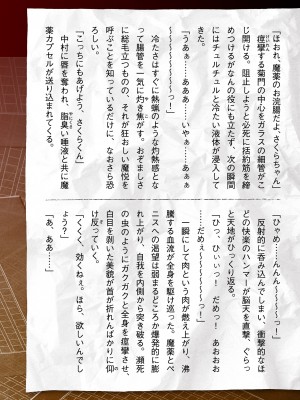 「ほおれ、魔薬のお浣腸だよ、さくらちゃん」
痙攣する菊門の中心をガラスの細管がこ
じ開ける。阻止しようと必死に括約筋を締
めつけるがなんの役にも立たず、次の瞬間
にはチュルチュルと冷たい液体が浸入して
きた。
「うあぁ……ああぁ……いやぁ……あ
～～～～～～～っ！」
冷たさはすぐに熱蝋のような灼熱感とな
って腸管を一気に灼き焦がす。おぞましさ
に総毛立つものの、それが狂おしい魔悦を
呼ぶことを知っているだけに、なおさら恐
ろしい。
「こっちにもあげよう、さくらくん」
中村に唇を奪われ、脂臭い唾液と共に魔
薬カプセルが送り込まれてくる。
「ひゃめ…んんん～～～～～っ！」
反射的に呑み込んでしまい、衝撃的なほ
どの快楽のハンマーが脳天を直撃、ぐらっ
と天地がひっくり返る。
「ひっ、ひぃぃっ！　だめっ！　あおおお
……だめぇ～～～～～～っ！」
一瞬にして肉という肉が燃え上がり、沸
騰する血流が全身を駆け巡った。魔薬とペ
ニスへの渇望は弱まるどころか爆発的に膨
れ上がり、自我を内側から突き破る。瀕死
の虫のようにガクガクと全身を痙攣させ、
白目を剥いた美貌が首が折れんばかりに仰
け反っていく。
「くくく、効くねぇ。ほら、欲しいんでし
ょう？」
「あ、ああ…」